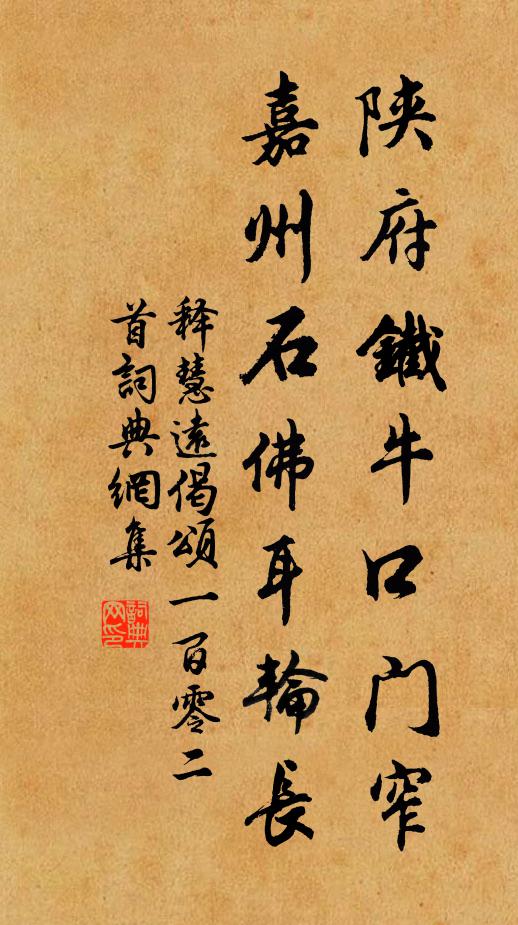 陕府鐵牛口门窄
嘉州石佛耳輪長
释慧遠偈頌一百零二
首詞典網集
詞典网印